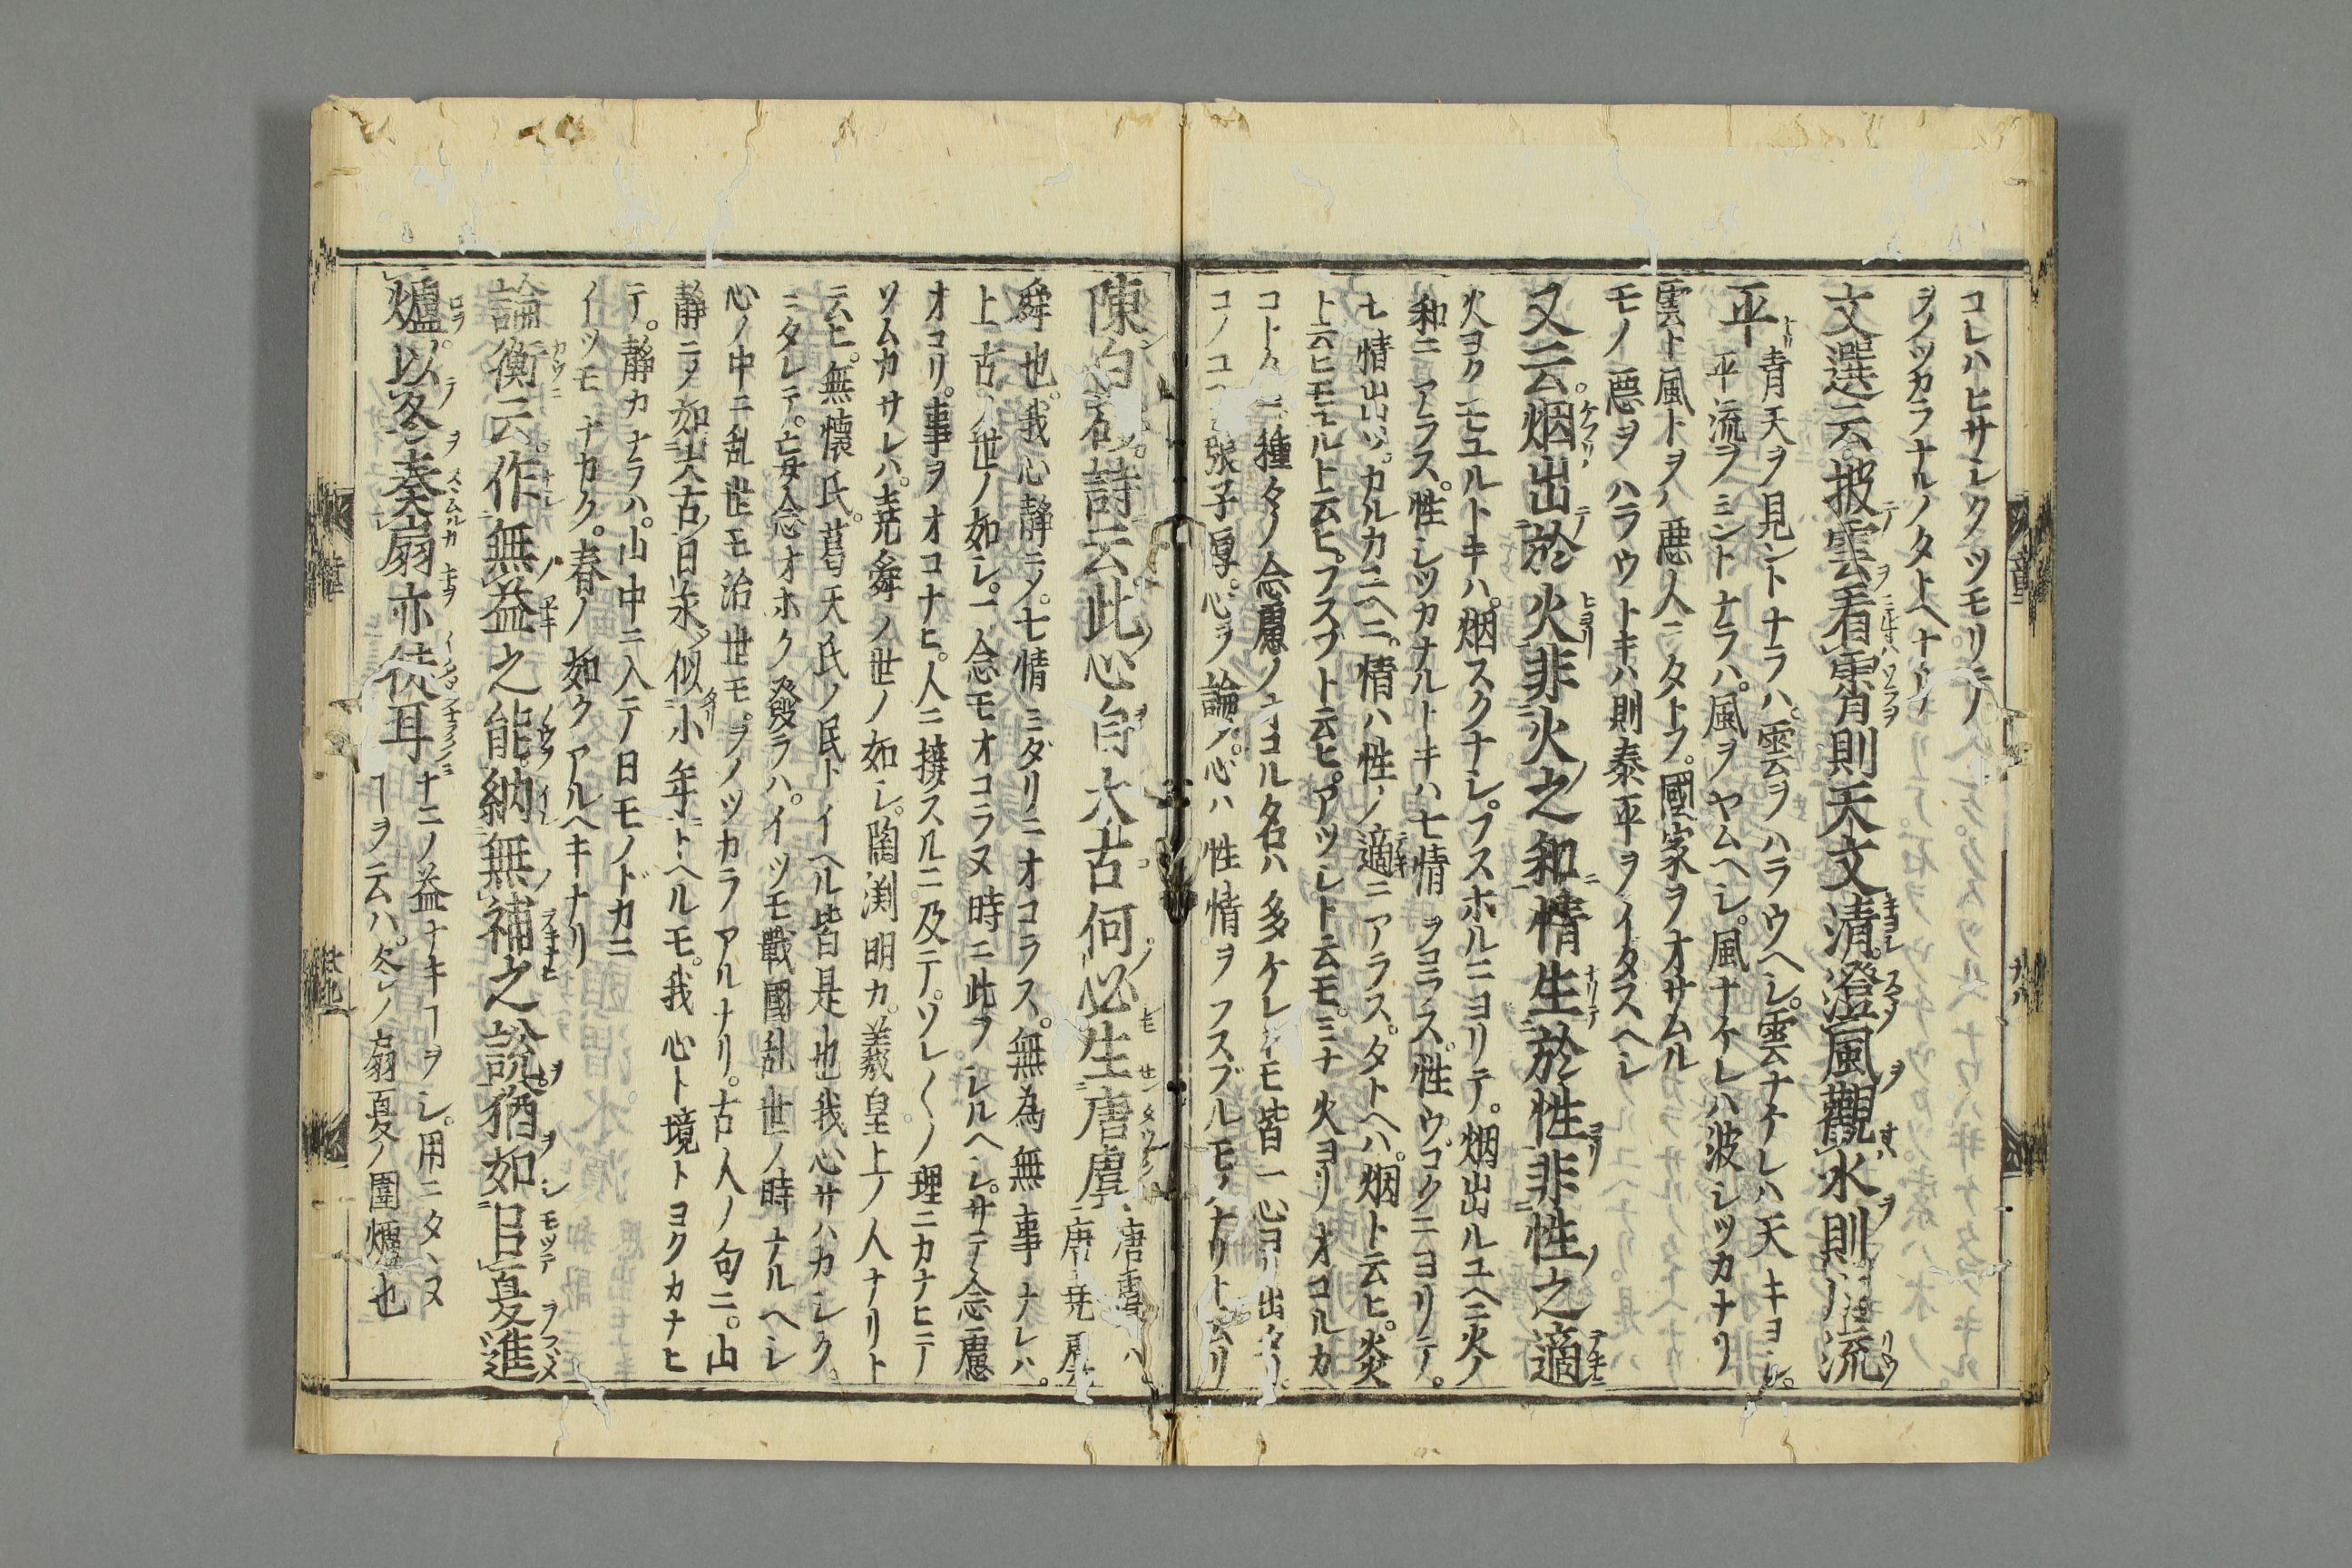 コレハヒサシクツモリテノ
ヲノツカラナルノタトヘナリ
文選云披雲看霄則天文清澄風觀水則川流
平 青天ヲ見ントナラハ雲ヲハラウヘシ雲ナケレハ天キヨシ
平流ヲミントナラハ風ヲヤムヘシ風ナケレハ波シツカナリ
雲ト風トヲハ悪人ニタトフ國家ヲオサムル
モノ悪ヲハラウトキハ則泰平ヲイタスヘシ
又云烟出於火非火之和情生於性非性之適
火ヨクモユルトキハ烟スクナシフスホルニヨリテ烟出ルユヘニ火ノ
和ニアラス性シツカナルトキハ七情ヲコラス性ウゴクニヨリテ
七情出ツカルカユヘニ情ハ性ノ適ニアラスタトヘハ烟ト云ヒ炎
ト云ヒモユルト云ヒフスブト云ヒアツシト云モミナ火ヨリオコルカ
コトク種々ノ念慮ノオコル名ハ多ケレトモ皆一心ヨリ出タリ
コノユヘ張子厚心ヲ論ノ心ハ性情ヲフスブルモノナリト云リ
陳白詩云此心自太古何必生唐虞
唐堯虞
舜也我心静ニノ七情ミダリニオコラス無為無事ナレハ
上古ノ世ノ如シ一念モオコラヌ時ニ此ヲシルヘシサテ念慮
オコリ事ヲオコナヒ人ニ接スルニ及テソレ〱ノ理ニカナヒテ
ソムカサレハ堯舜ノ世ノ如シ陶渕明カ羲皇上ノ人ナリト
云ヒ無懐氏葛天氏ノ民トイヘル皆是也我心サハカシク
ミタレテ妄念オホク發ラハイツモ戰國乱世ノ時ナルヘシ
心ノ中ニ乱世モ治世モヲノツカラアルナリ古人ノ句ニ山
静ニノ如太古日永似小年トヘルモ我心ト境トヨクカナヒ
テ静カナラハ山中ニ入テ日モノドカニ
イツモナカク春ノ如クアルヘキナリ
論衡云作無益之能納無補之說猶如以夏進
爐以冬奏扇亦徒耳
ナニノ益ナキヿヲシ用ニタヽヌ
ヿヲ云ハ冬ノ扇夏ノ圍爐也